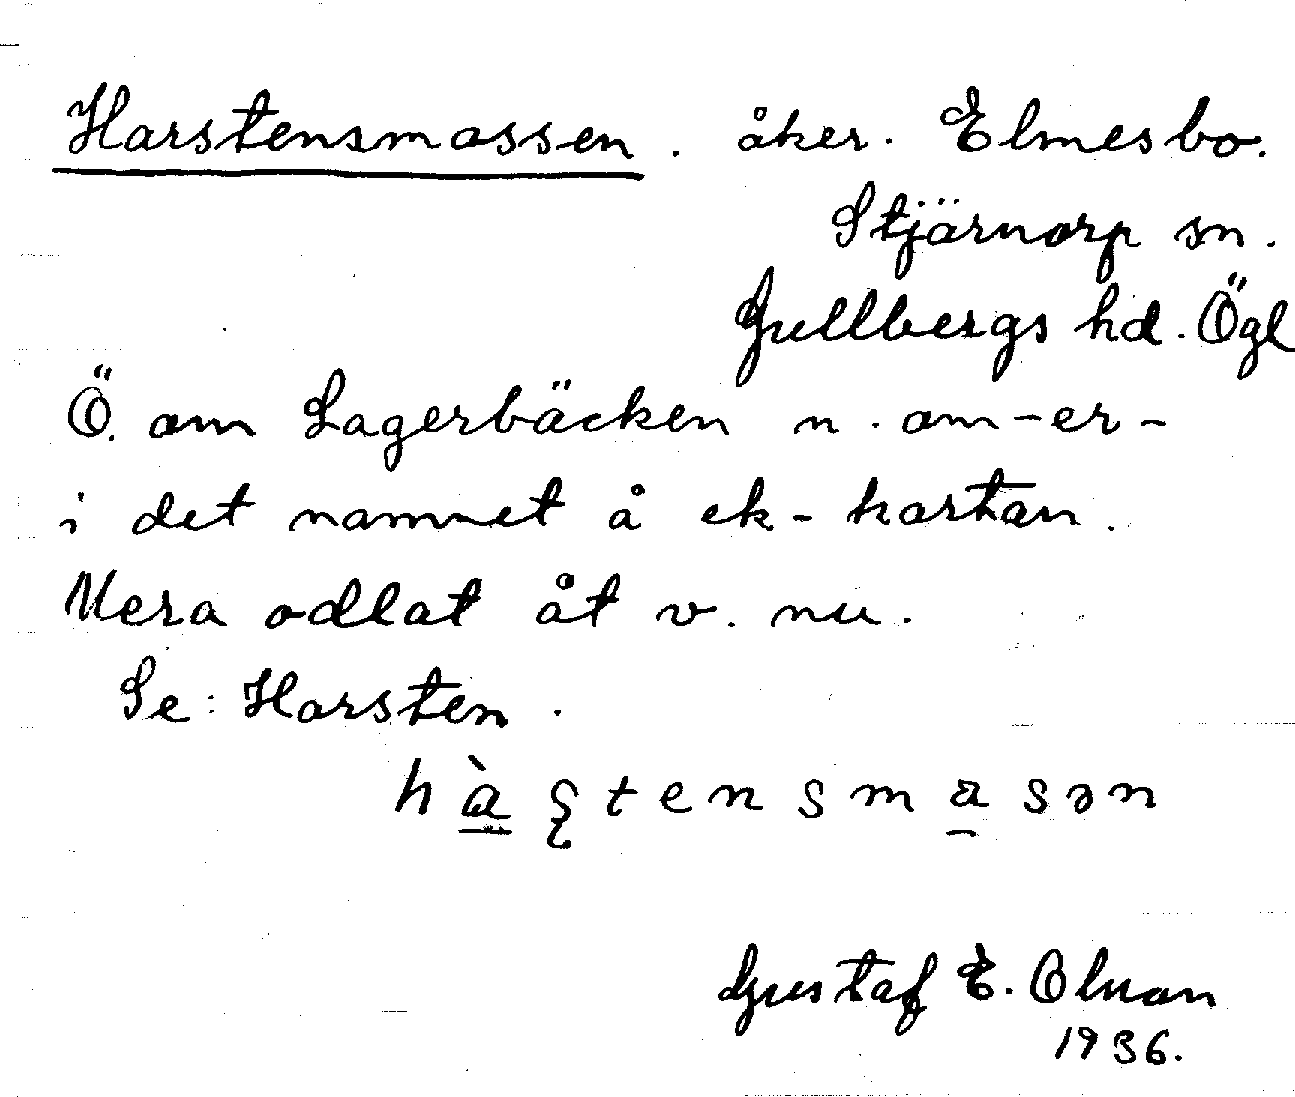 Harstensmossen. åker. Elmesbo.
Stjärnorp sn.
Gullbergs hd. Ögl
Ö. om Lagerbäcken n. om -er-
i det namnet å ek-kartan.
Mera odlat åt v. nu.
Se: Harsten.
Gustaf E. Olson
1936.